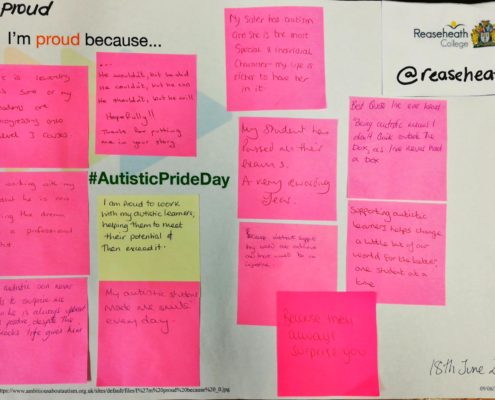 proud
I'm proud because...
Reaseheath
College
@reaseheat
is learning
my
are
progressing onto
Level 3 courses.
...
He wouldn't, but he did
He couldn't, but he can
He shouldn't, but he will
Hopefully!!
Thanks for putting
me in your story.
My Sister has autism
and she is the most
Special & individual
Character - my life is
richer to have her
in it.
My student has
passed all their
exams.
A very rewarding
year.
Best Quote I've ever heard
"Being autistic means I
don't think outside the
box, as I've never had
a box
#AutisticPrideDay
working with my
he is now
the dream
a professional
I am proud to work
with my autistic learners,
helping them to meet
their potential &
then exceed it.
Supporting autistic
learners helps change
a little bit of our
world for the better,
one student at a
time
autistic can never
to surprise me
he is always upbeat
positive, despite the
life gives him
My autistic student
made me smile
every day
Because they
always
surprise you
18th June 2
https://www.ambitiousaboutautism.org.uk/sites/default/files/I%27m%20proud%20because%20_0.jpg
09/06/